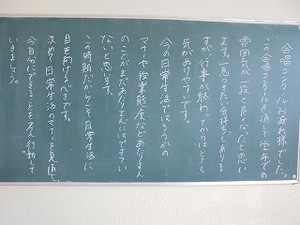 合唱コンクールお疲れ様でした。
この合唱コンクールを通して学年の
雰囲気が一段と良くなったと思い
ます。一息つきたい気持ちもあります
が、行事が終わってからはとても
気がぬけやすいです。
今の日常生活ではどうかの
マナーや授業態度などあたりまえ
のことがまだあたりまえにはできてい
ないと思います。
この時期だからこそ日常生活に
目を向けるべきです。
改めて日常生活のマナーを見直して、
今自分にできることを考え行動して
いきましょう。